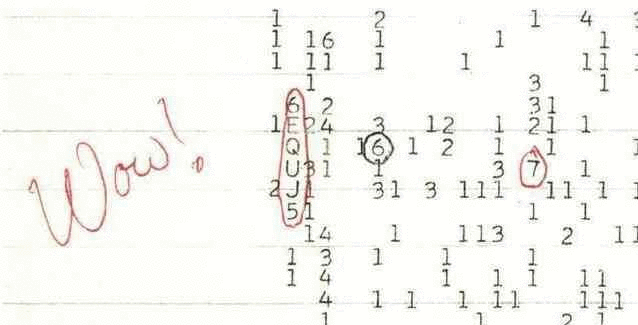 1 2 1 4 3
1 16 1 1 1
1 11 1 1 11 1
1 3 1
6 2 31
1 E 24 3 12 1 21 1
Q 1 16 1 2 1 1 1
Wow! U 31 1 3 7 1
2 J 1 31 3 111 11 1 1
5 1 1 1
14 1 113 2 11
1 3 1 1 1
1 4 1 1 1 11
4 1 1 1 11 111
1 1 2 1